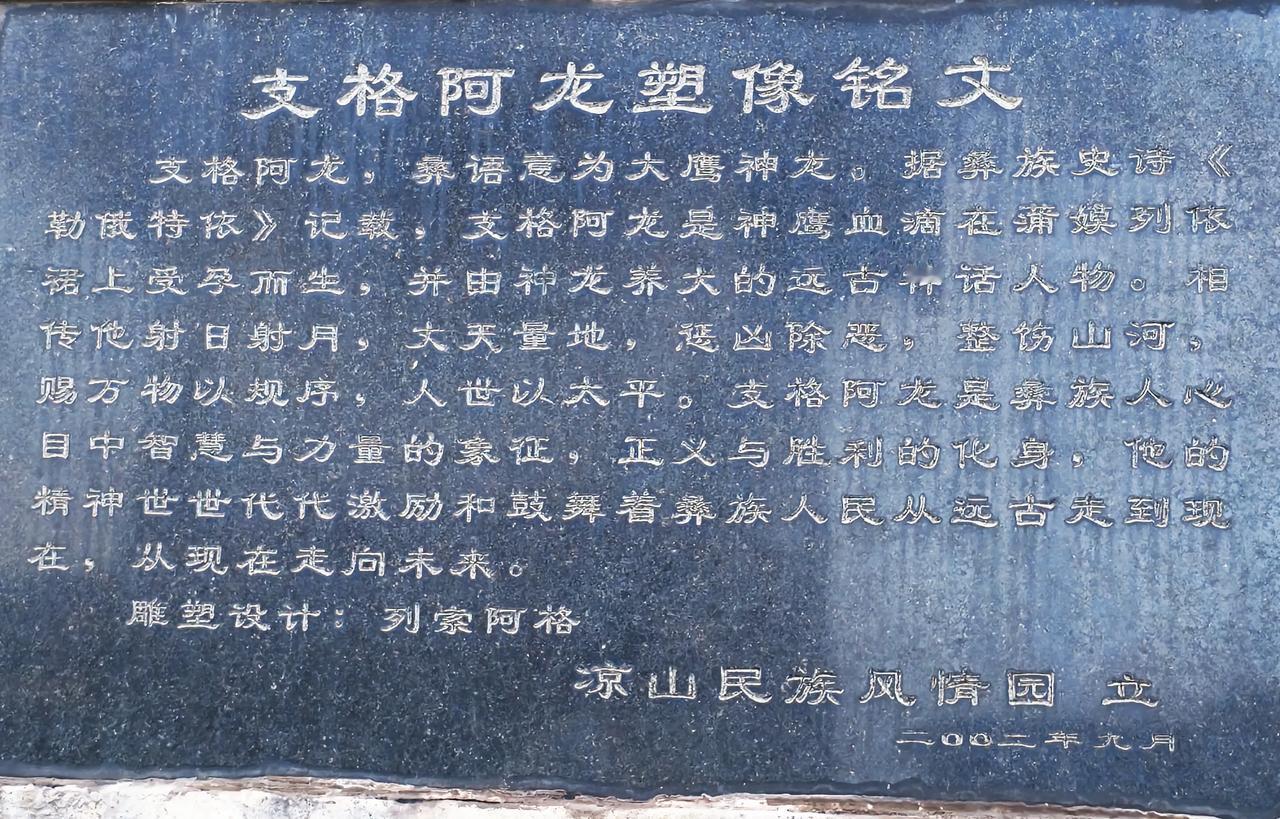 支格阿龙塑像铭文
支格阿龙，彝语意为大鹰神龙。据彝族史诗《
勒俄特依》记载，支格阿龙是神鹰血滴在蒲嫫列依
裙上受孕而生，并由神龙养大的远古神话人物。相
传他射日射月，丈天量地，惩凶除恶，整饬山河，
赐万物以规序，人世以太平。支格阿龙是彝族人心
目中智慧与力量的象征，正义与胜利的化身，他的
精神世世代代激励和鼓舞着彝族人民从远古走到现
在，从现在走向未来。
雕塑设计：列索阿格
凉山民族风情园 立
二00二年九月